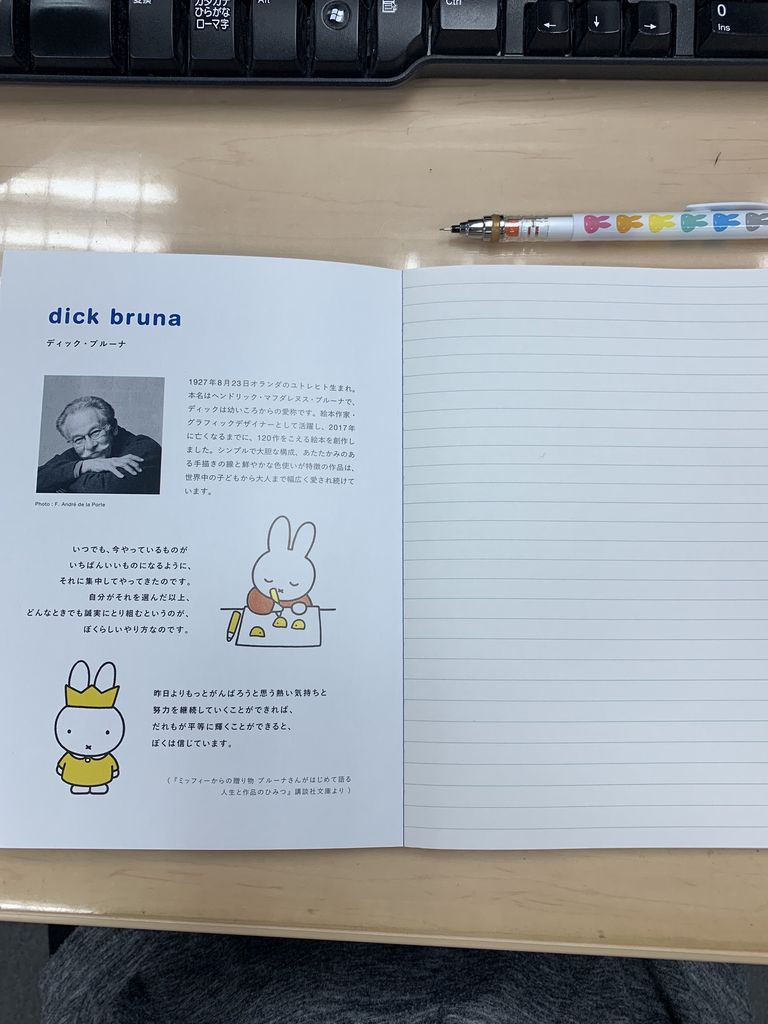 変換
カタカナ
ひらがな
ローマ字
Alt
Ctrl
←
↓
→
0
Ins
dick bruna
ディック・ブルーナ
1927年8月23日オランダのユトレヒト生まれ。
本名はヘンドリック・マフダレヌス・ブルーナで、
ディックは幼いころからの愛称です。絵本作家・
グラフィックデザイナーとして活躍し、2017年
に亡くなるまでに、120作をこえる絵本を創作し
ました。シンプルで大胆な構成、あたたかみのあ
る手描きの線と鮮やかな色使いが特徴の作品は、
世界中の子どもから大人まで幅広く愛され続けて
います。
Photo : F. André de la Porte
いつでも、今やっているものが
いちばんいいものになるように、
それに集中してやってきたのです。
自分がそれを選んだ以上、
どんなときでも誠実にとり組むというのが、
ぼくらしいやり方なのです。
昨日よりもっとがんばろうと思う熱い気持ちと
努力を継続していくことができれば、
だれもが平等に輝くことができると、
ぼくは信じています。
(『ミッフィーからの贈り物 ブルーナさんがはじめて語る
人生と作品のひみつ』講談社文庫より)